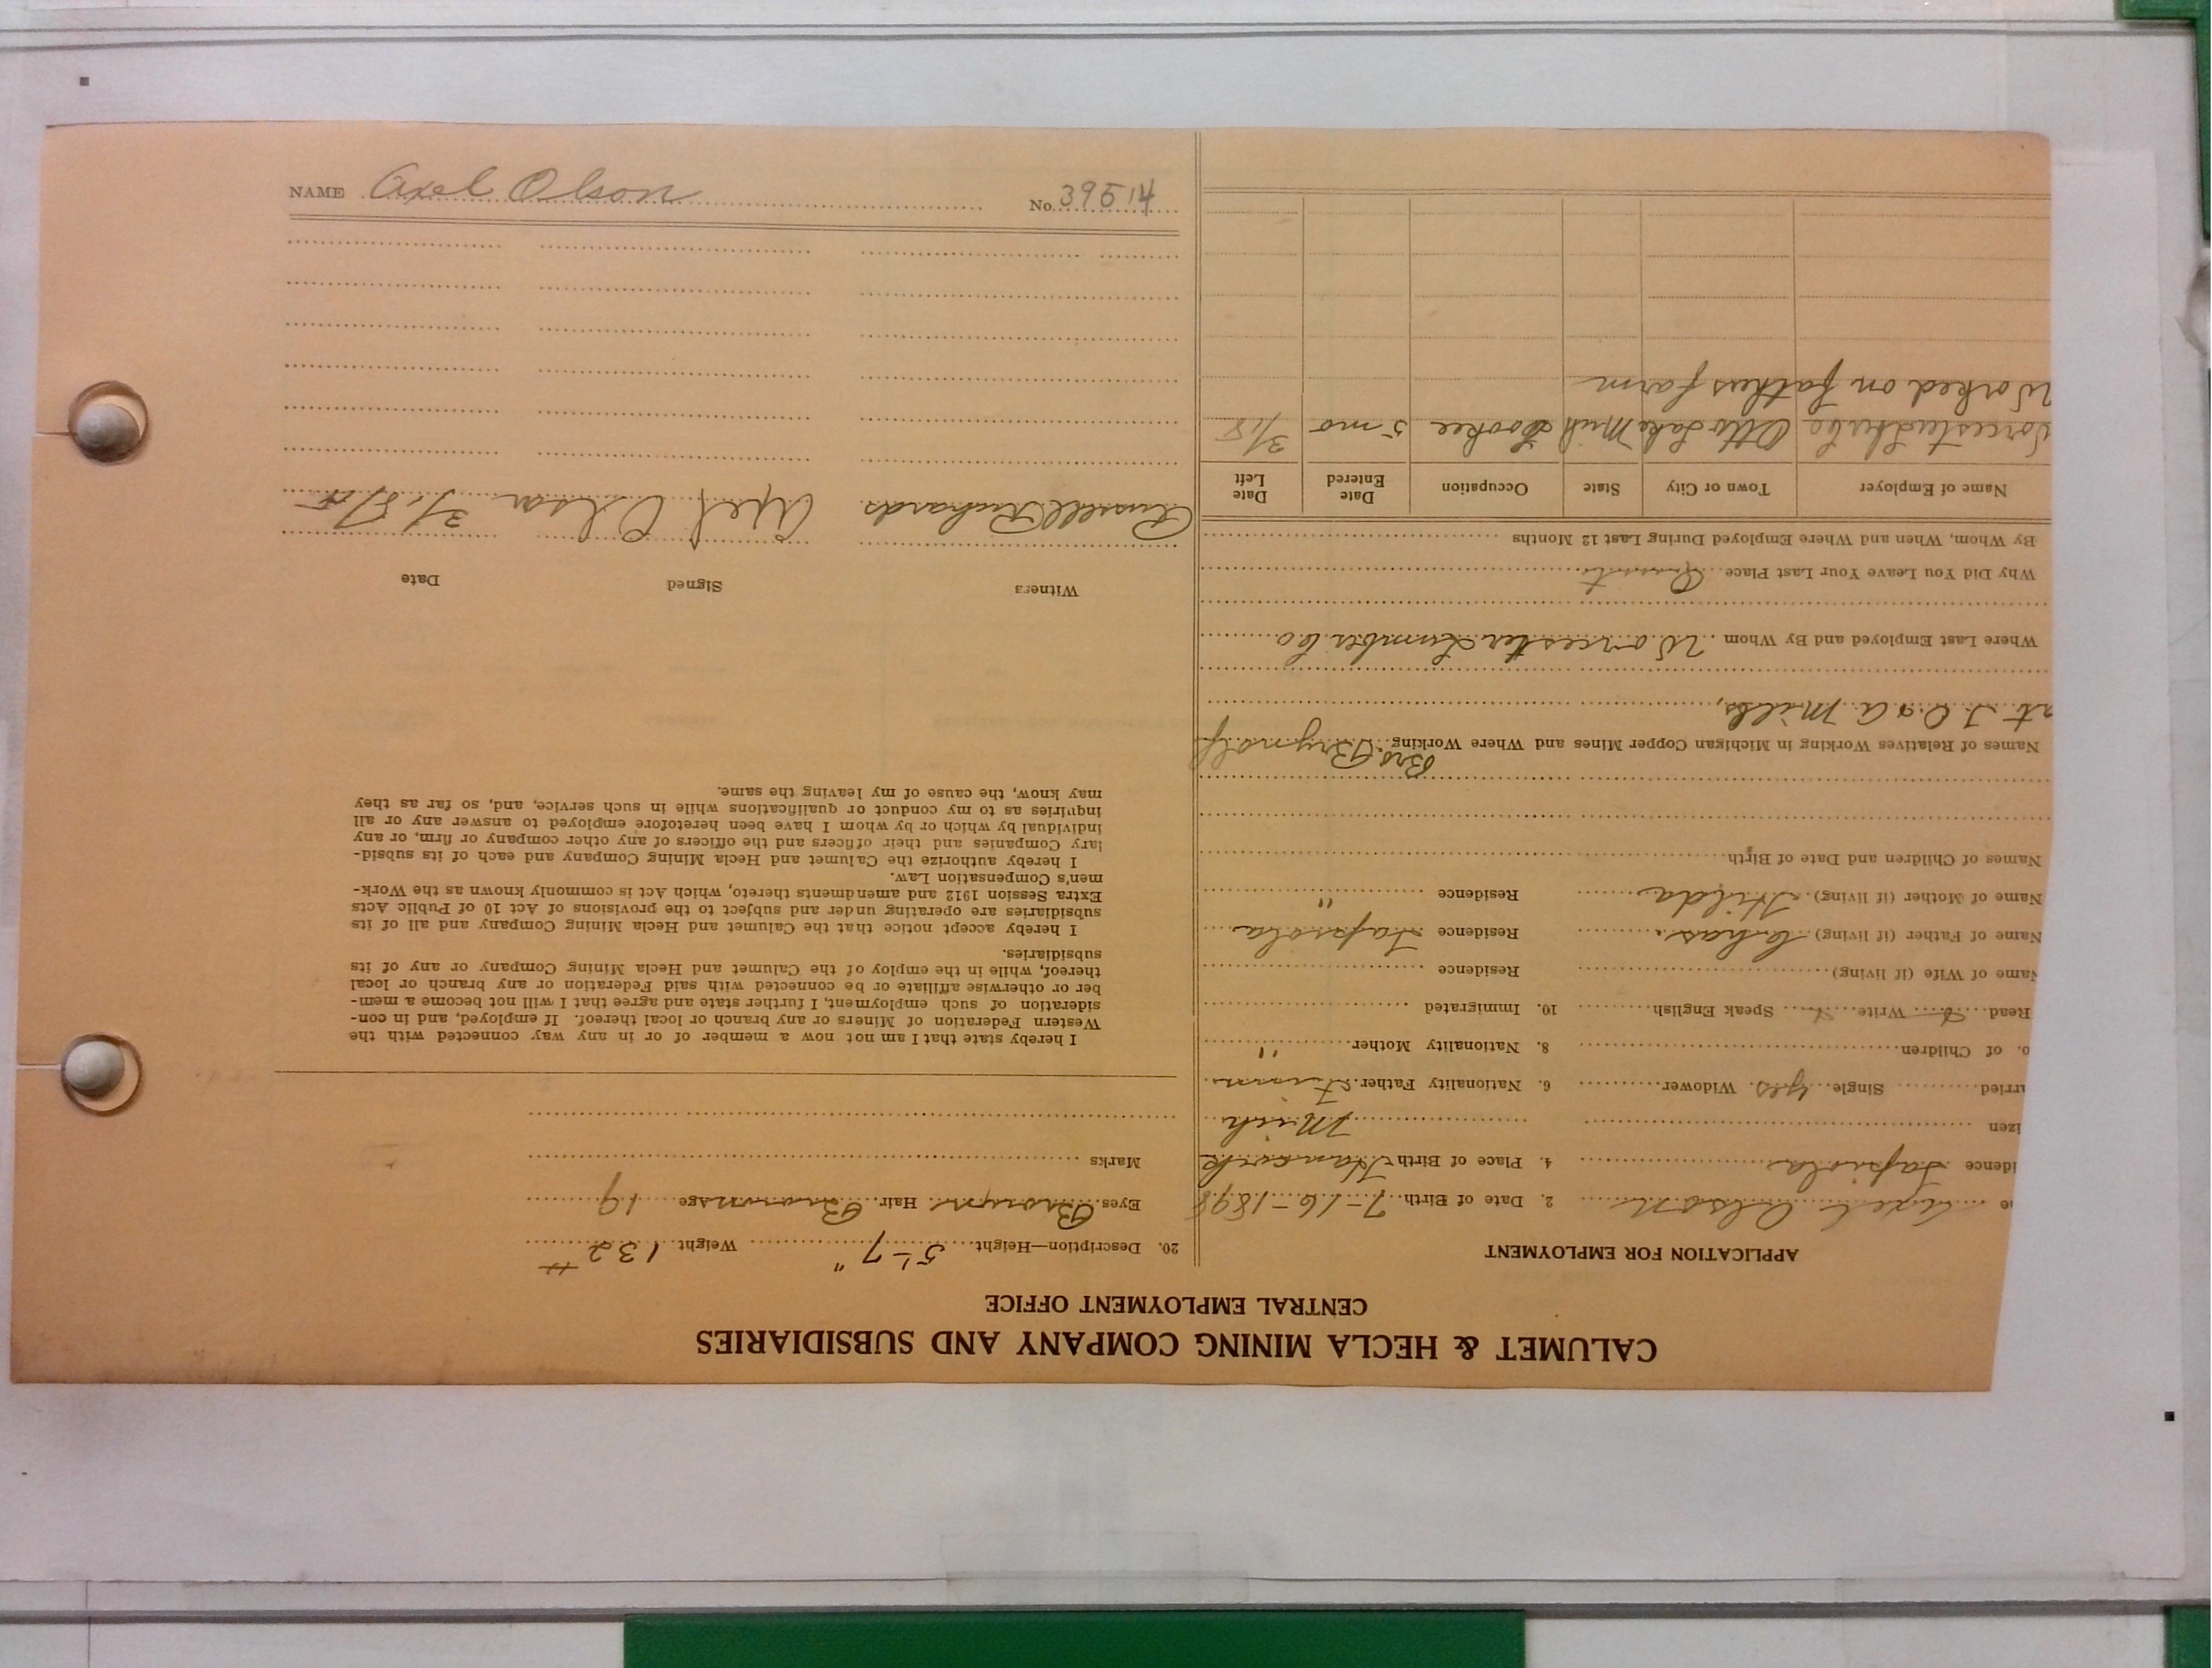 NAME Axel Olson No. 39514
CALUMET & HECLA MINING COMPANY AND SUBSIDIARIES
CENTRAL EMPLOYMENT OFFICE
APPLICATION FOR EMPLOYMENT
e Axel Olson 2. Date of Birth 7-16-1898
idence Tapiola 4. Place of Birth Hancock
izen Mich
rried Single yes Widower 6. Nationality Father Finn
o. of Children 8. Nationality Mother "
Read Write Speak English 10. Immigrated
Name of Wife (if living) Residence
Name of Father (if living) Chas. Residence Tapiola
Name of Mother (if living) Hilda Residence "
Names of Children and Date of Birth
Names of Relatives Working in Michigan Copper Mines and Where Working Bro. Brynolf
at I.R. & A. Mills,
Where Last Employed and By Whom Worcester Lumber Co
Why Did You Leave Your Last Place
By Whom, When and Where Employed During Last 12 Months
Name of Employer Town or City State Occupation Date Entered Date Left
Otto Lake Mich 5 mo 3/18
Worked on fathers farm
20. Description—Height 5'-7" Weight 132 #
Eyes Brown Hair Brown Age 19
Marks
I hereby state that I am not now a member of or in any way connected with the
Western Federation of Miners or any branch or local thereof. If employed, and in con-
sideration of such employment, I further state and agree that I will not become a mem-
ber or otherwise affiliate or be connected with said Federation or any branch or local
thereof, while in the employ of the Calumet and Hecla Mining Company or any of its
subsidiaries.
I hereby accept notice that the Calumet and Hecla Mining Company and all of its
subsidiaries are operating under and subject to the provisions of Act 10 of Public Acts
Extra Session 1912 and amendments thereto, which Act is commonly known as the Work-
men's Compensation Law.
I hereby authorize the Calumet and Hecla Mining Company and each of its subsid-
iary Companies and their officers and the officers of any other company or firm, or any
individual by which or by whom I have been heretofore employed to answer any or all
inquiries as to my conduct or qualifications while in such service, and, so far as they
may know, the cause of my leaving the same.
Witness Signed Date
Russell Richards Axel Olson